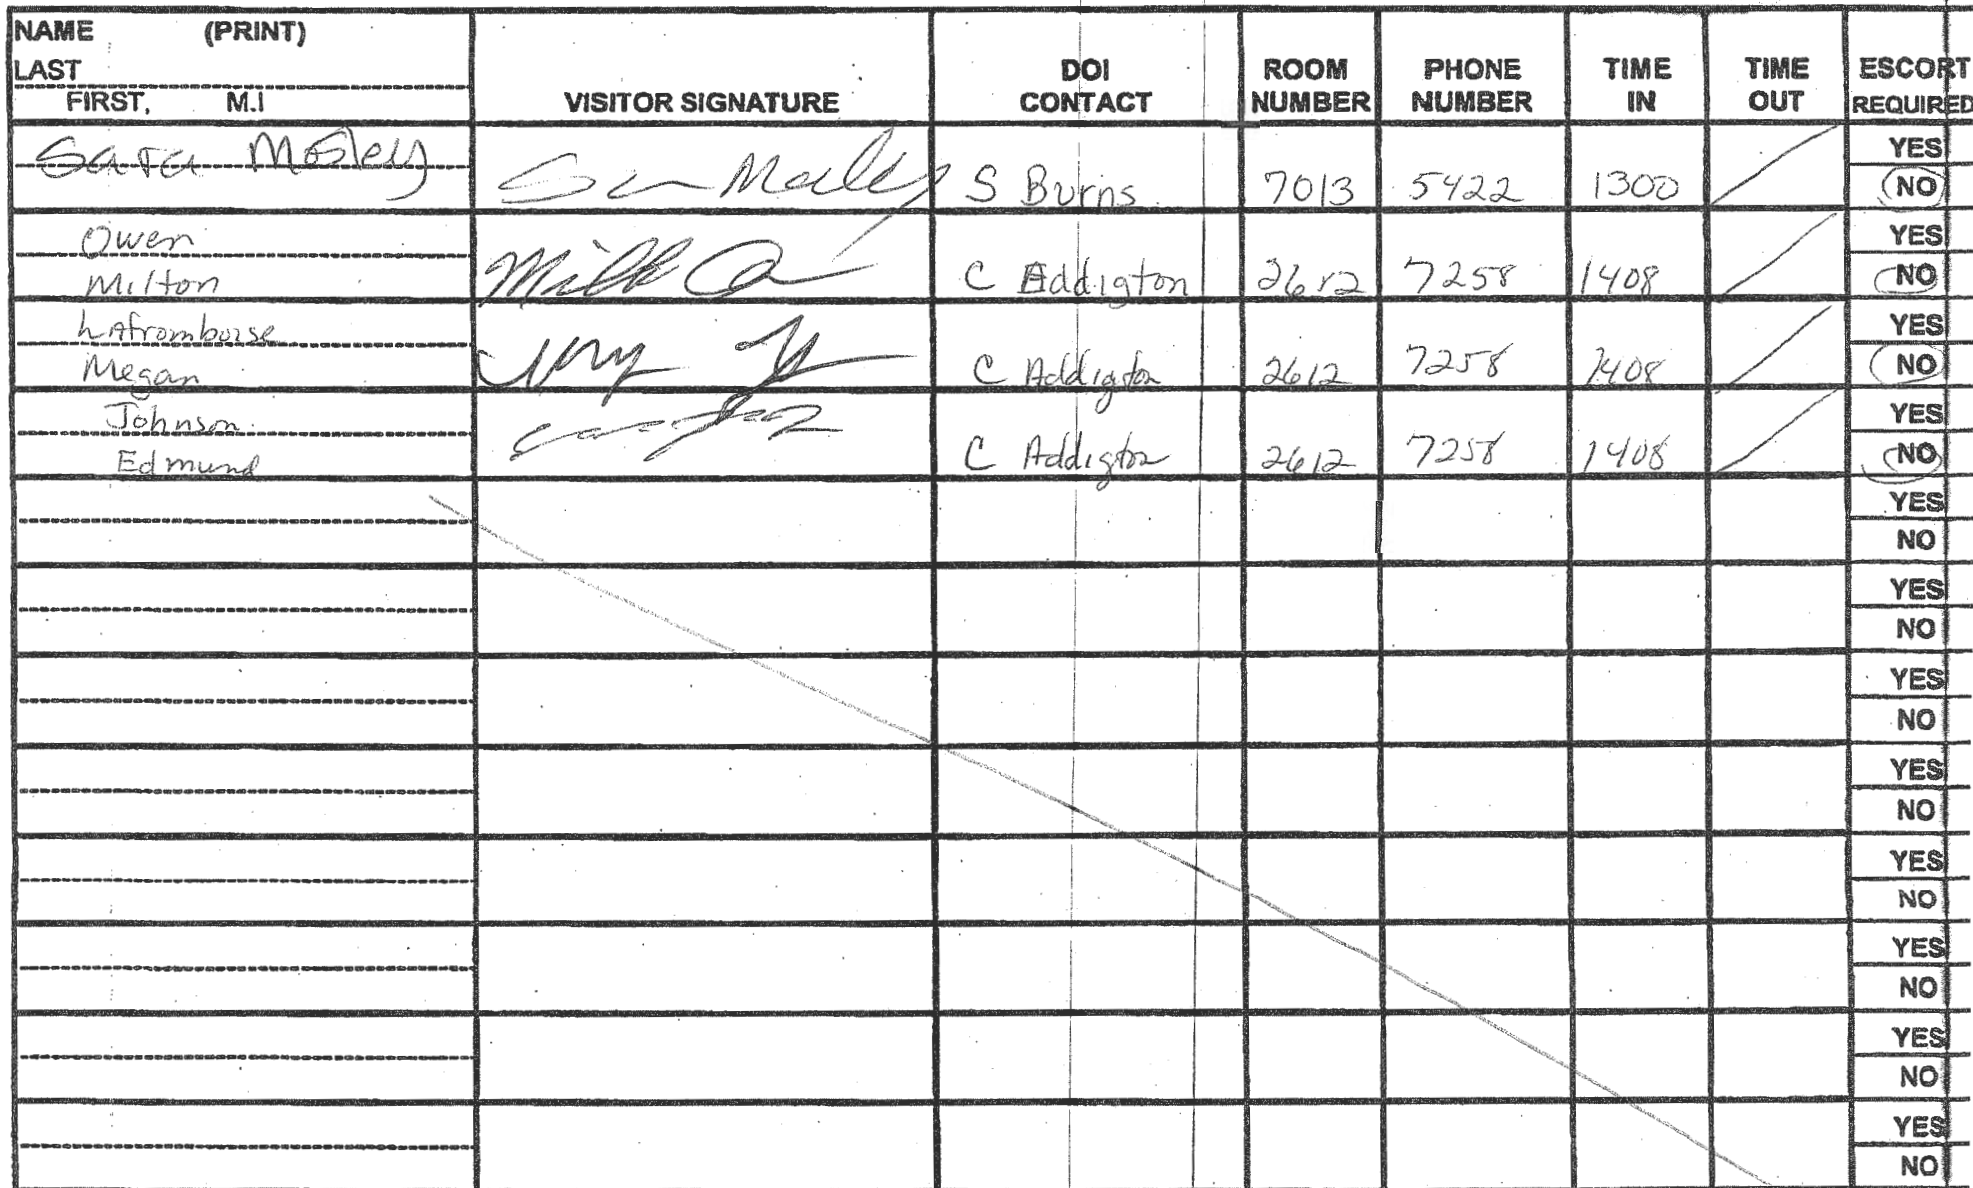 NAME (PRINT)
LAST
FIRST, M.I
VISITOR SIGNATURE
DOI CONTACT
ROOM NUMBER
PHONE NUMBER
TIME IN
TIME OUT
ESCORT REQUIRED
Sara Mosley S Burns 7013 5422 1300 YES NO
Owen
Milton C Addigton 2612 7258 1408 YES NO
Lafromboise
Megan C Addigton 2612 7258 1408 YES NO
Johnson
Edmund C Addigton 2612 7258 1408 YES NO
YES
NO
YES
NO
YES
NO
YES
NO
YES
NO
YES
NO
YES
NO
YES
NO